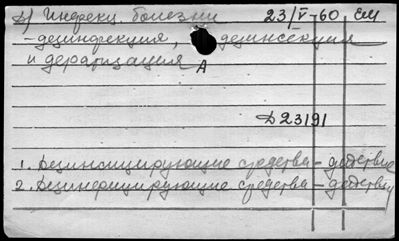 д) Инфекц. болезни 23/V-60 Ем
- дезинфекция, дезинсекция
и дератизация
А
Д23191
1. Дезинсицирующие средства – действие
2. Дезинфицирующие средства – действие